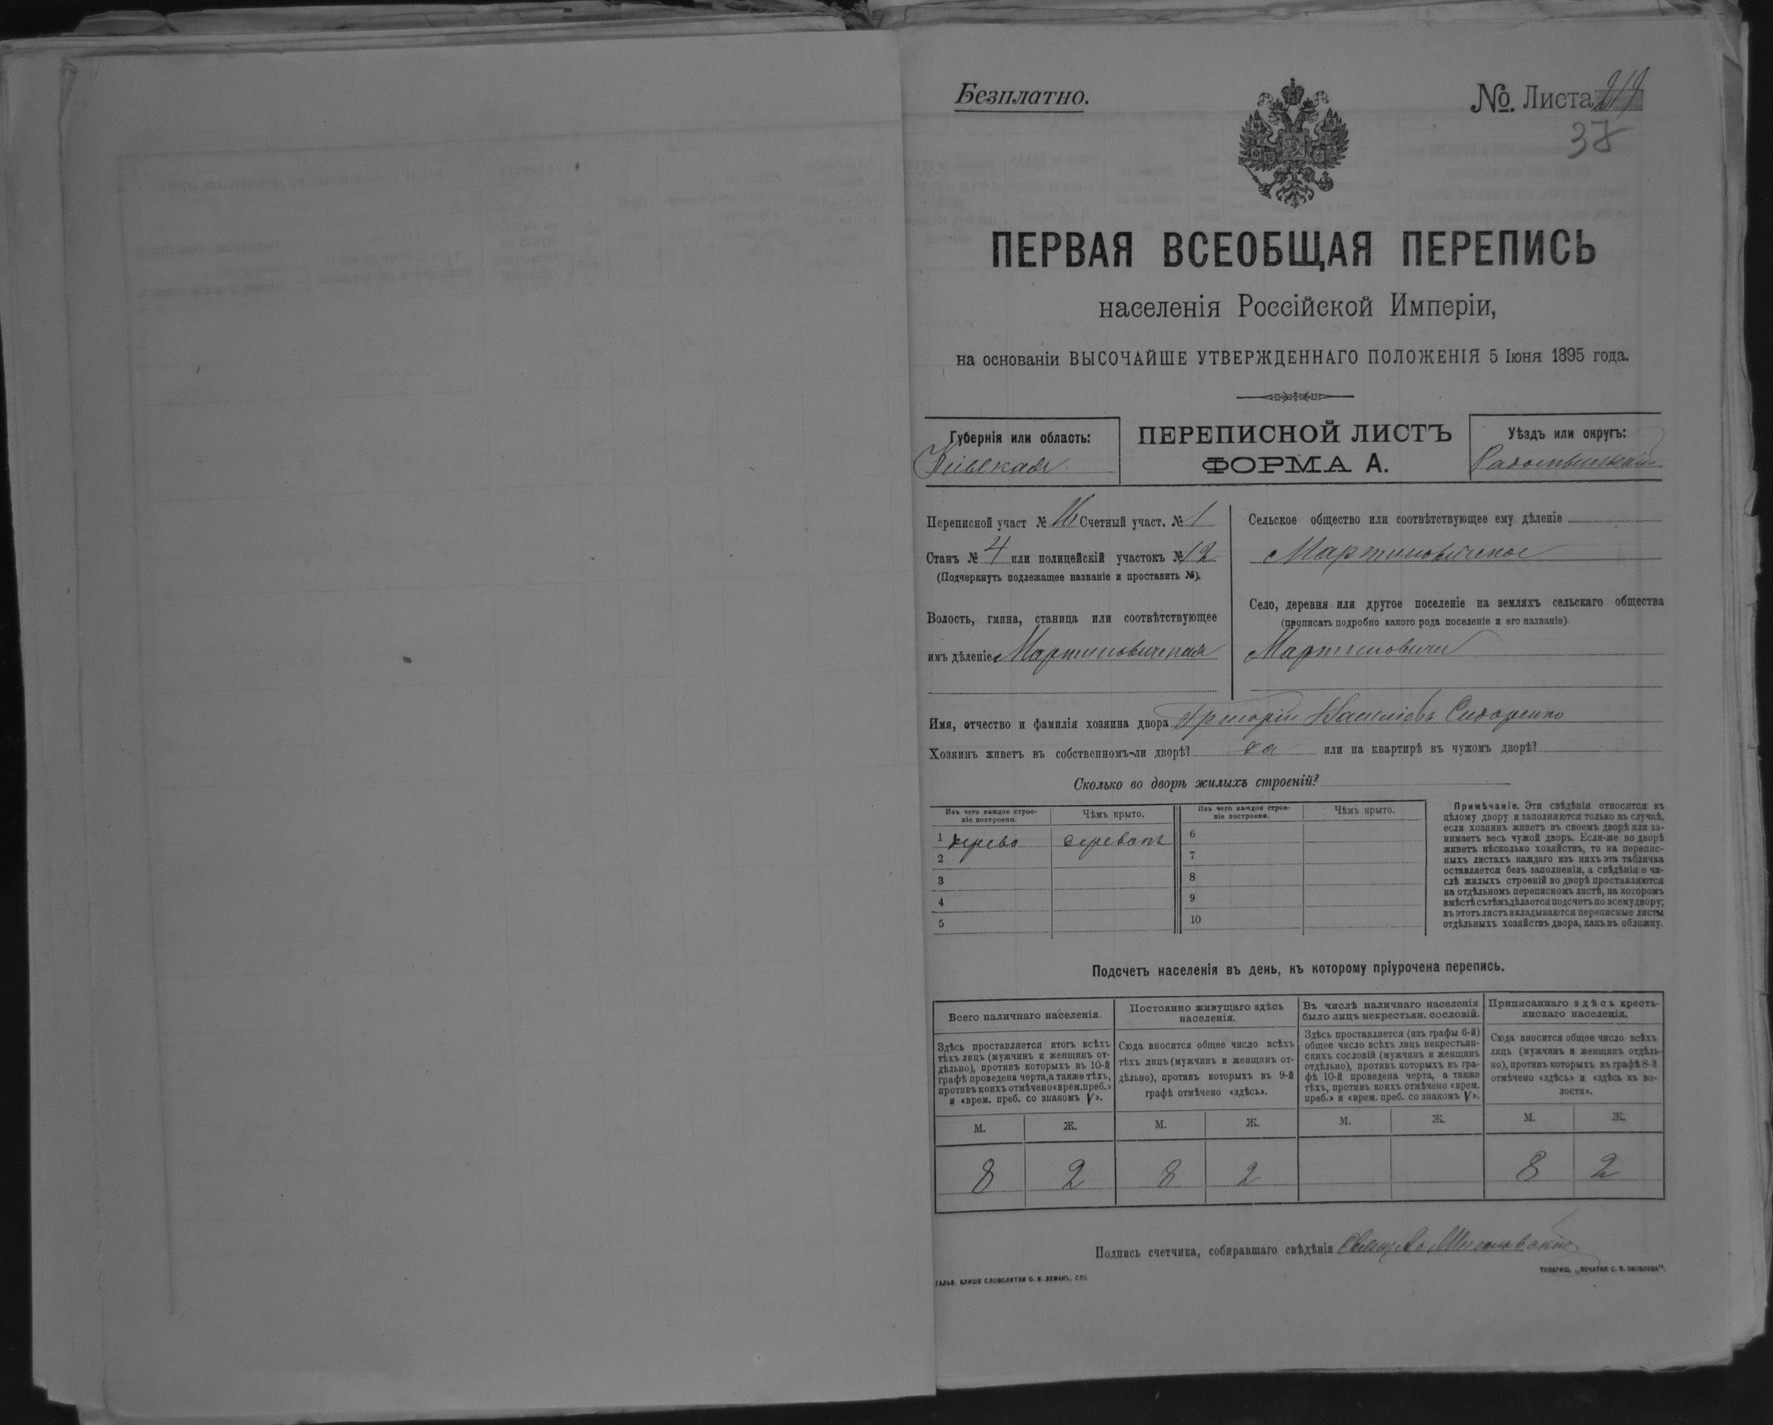 Безплатно.
№. Листа
37
ПЕРВАЯ ВСЕОБЩАЯ ПЕРЕПИСЬ
населенія Россійской Имперіи,
на основаніи ВЫСОЧАЙШЕ УТВЕРЖДЕННАГО ПОЛОЖЕНІЯ 5 Іюня 1895 года.
Губернія или область:
Кіевская
ПЕРЕПИСНОЙ ЛИСТЪ
ФОРМА А.
Уѣздъ или округъ:
Радомысльскій
Переписной участ № 16 Счетный участ. № 1
Станъ № 4 или полицейскій участокъ № 12
(Подчеркнуть подлежащее названіе и проставить №).
Волость, гмина, станица или соотвѣтствующее
имъ дѣленіе Мартиновичская
Сельское общество или соотвѣтствующее ему дѣленіе
Мартиновичское
Село, деревня или другое поселеніе на земляхъ сельскаго общества
(прописать подробно какого рода поселеніе и его названіе)
Мартиновичи
Имя, отчество и фамилія хозяина двора Григорій Василіевъ Сидоренко
Хозяинъ живетъ въ собственномъ-ли дворѣ? да или на квартирѣ въ чужомъ дворѣ?
Сколько во дворѣ жилыхъ строеній?
Изъ чего каждое строе-
ніе построено.
Чѣмъ крыто.
1 дерево деревомъ
2
3
4
5
Изъ чего каждое строе-
ніе построено.
Чѣмъ крыто.
6
7
8
9
10
Примѣчаніе. Эти свѣдѣнія относятся къ
цѣлому двору и заполняются только въ случаѣ,
если хозяинъ живетъ въ своемъ дворѣ или за-
нимаетъ весь чужой дворъ. Если-же во дворѣ
живетъ нѣсколько хозяйствъ, то на перепис-
ныхъ листахъ каждаго изъ нихъ эта табличка
оставляется безъ заполненія, а свѣдѣнія о чи-
слѣ жилыхъ строеній во дворѣ проставляются
на отдѣльномъ переписномъ листѣ, на которомъ
вмѣстѣ съ тѣмъ дѣлается подсчетъ по всему двору;
въ этотъ листъ вкладываются переписные листы
отдѣльныхъ хозяйствъ двора, какъ въ обложку.
Подсчетъ населенія въ день, къ которому пріурочена перепись.
Всего наличнаго населенія.
Здѣсь проставляется итогъ всѣхъ
тѣхъ лицъ (мужчинъ и женщинъ от-
дѣльно), противъ которыхъ въ 10-й
графѣ проведена черта, а также тѣхъ,
противъ коихъ отмѣчено «врем. преб.»
и «врем. преб. со знакомъ V».
Постоянно живущаго здѣсь
населенія.
Сюда вносится общее число всѣхъ
тѣхъ лицъ (мужчинъ и женщинъ от-
дѣльно), противъ которыхъ въ 9-й
графѣ отмѣчено «здѣсь».
Въ числѣ наличнаго населенія
было лицъ некрестьян. сословій.
Здѣсь проставляется (изъ графы 6-й)
общее число всѣхъ лицъ некрестьян-
скихъ сословій (мужчинъ и женщинъ
отдѣльно), противъ которыхъ въ гра-
фѣ 10-й проведена черта, а также
тѣхъ, противъ коихъ отмѣчено «врем.
преб.» и «врем. преб. со знакомъ V».
Приписаннаго здѣсь кресть-
янскаго населенія.
Сюда вносится общее число всѣхъ
лицъ (мужчинъ и женщинъ отдѣль-
но), противъ которыхъ въ графѣ 8-й
отмѣчено «здѣсь» и «здѣсь въ во-
лости».
М. Ж. М. Ж. М. Ж. М. Ж.
8 2 8 2 8 2
Подпись счетчика, собиравшаго свѣдѣнія
ГАЛЬВ. КЛИШЕ СЛОВОЛИТНИ О. И. ЛЕМАНЪ, СПБ.
ТОВАРИЩ. „ПЕЧАТНЯ С. П. ЯКОВЛЕВА".